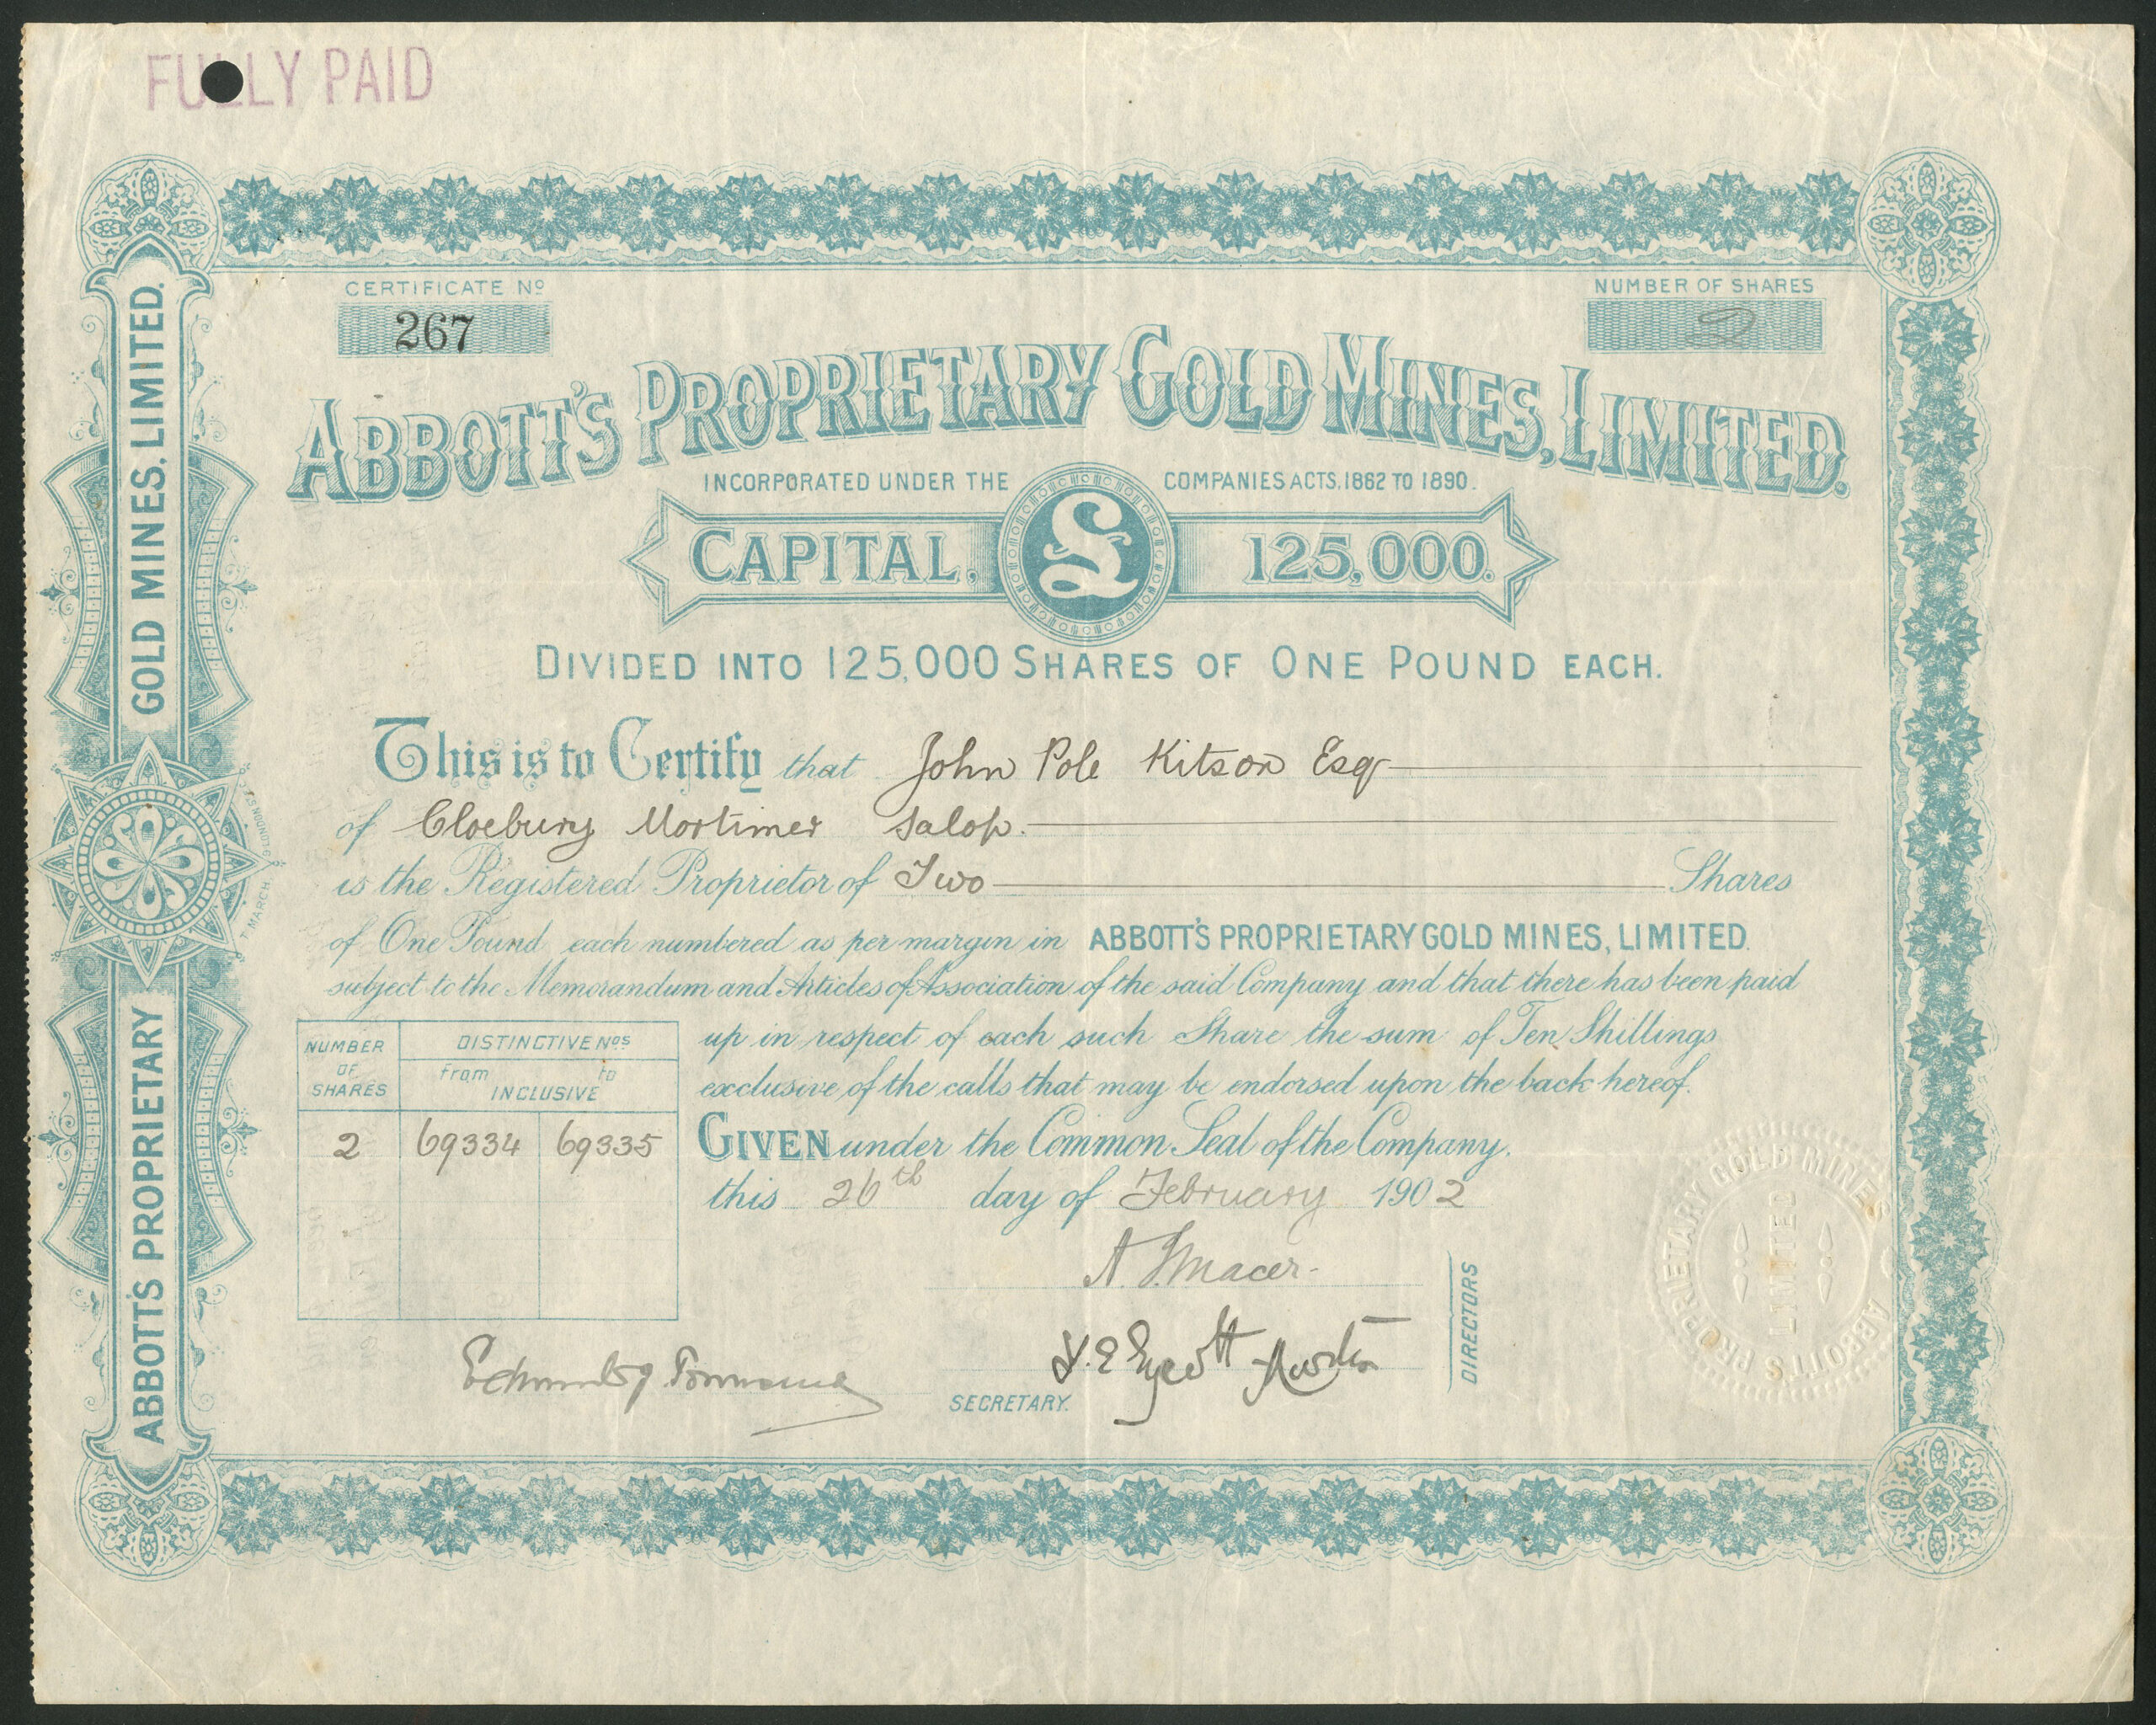 FULLY PAID
CERTIFICATE Nº
267
NUMBER OF SHARES
2
ABBOTT'S PROPRIETARY GOLD MINES, LIMITED.
INCORPORATED UNDER THE COMPANIES ACTS. 1862 TO 1890.
CAPITAL, £ 125,000.
DIVIDED INTO 125,000 SHARES OF ONE POUND EACH.
This is to Certify that John Pole Kitson Esqr
of Cloebury Mortimer Salop.
is the Registered Proprietor of Two Shares
of One Pound each numbered as per margin in ABBOTT'S PROPRIETARY GOLD MINES, LIMITED.
subject to the Memorandum and Articles of Association of the said Company and that there has been paid
up in respect of each such Share the sum of Ten Shillings
exclusive of the calls that may be endorsed upon the back hereof.
NUMBER OF SHARES
DISTINCTIVE Nos
from to
INCLUSIVE
2 69334 69335
GIVEN under the Common Seal of the Company.
this 26th day of February 1902
DIRECTORS
SECRETARY.
ABBOTT'S PROPRIETARY GOLD MINES, LIMITED.
ABBOTT'S PROPRIETARY GOLD MINES
LIMITED